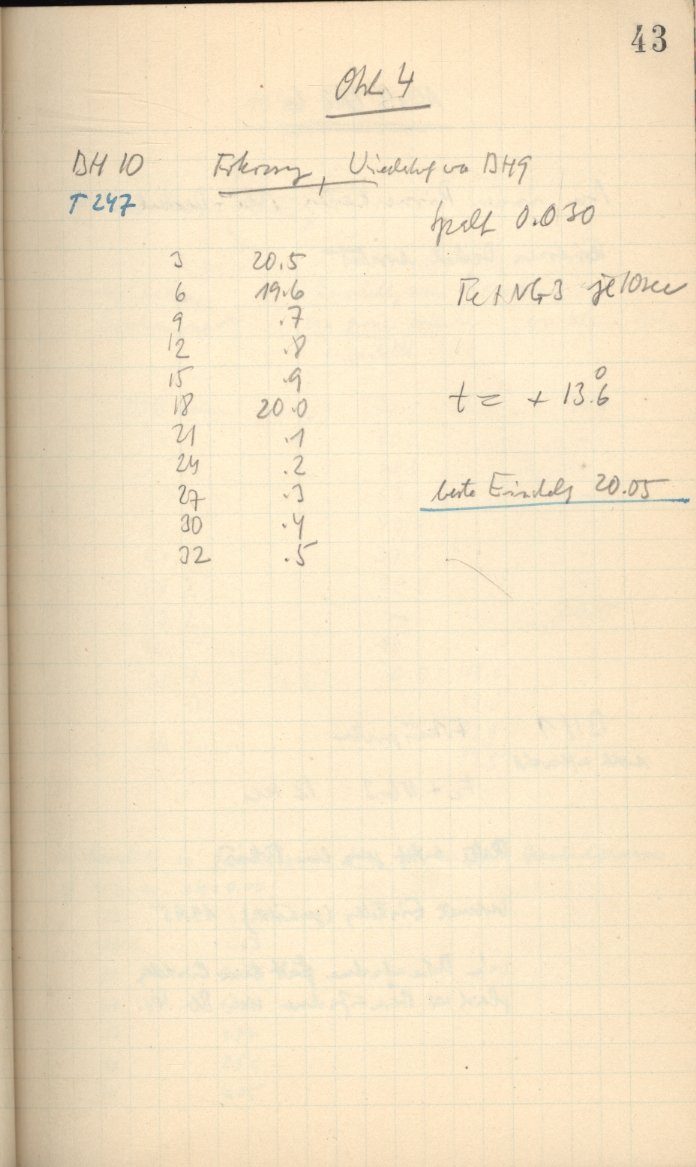 43
Okt 4
BH 10 Fokussg, Wiederholg von BH9
T 247
Spalt 0.030
3 20.5
6 19.6
Fe + NG3 je 10 sec
9 .7
12 .8
15 .9
t = + 13.°6
18 20.0
21 .1
24 .2
beste Einstellg 20.05
27 .3
30 .4
32 .5